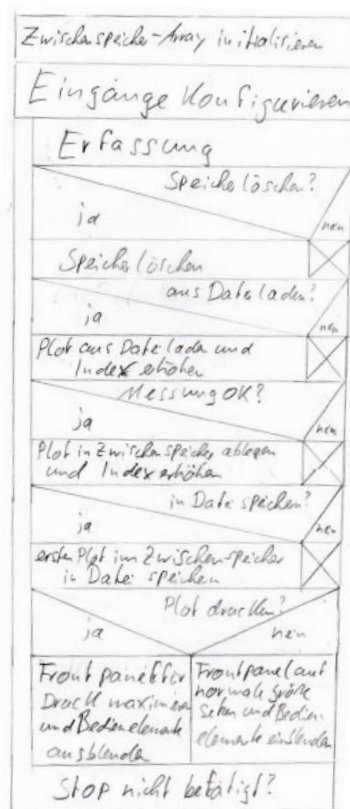 Zwischenspeicher-Array initialisieren
Eingänge Konfigurieren
Erfassung
Speicher löschen?
ja
nein
Speicher löschen
aus Datei laden?
ja
nein
Plot aus Datei laden und
Index erhöhen
Messung OK?
ja
nein
Plot in Zwischenspeicher ablegen
und Index erhöhen
in Datei speichern?
ja
nein
ersten Plot im Zwischen-speicher
in Datei speichern
Plot drucken?
ja
nein
Frontpanel für
Druck maximieren
und Bedienelemente
ausblenden
Frontpanel auf
normale größe
setzen und Bedien-
elemente einblenden
Stop nicht betätigt?